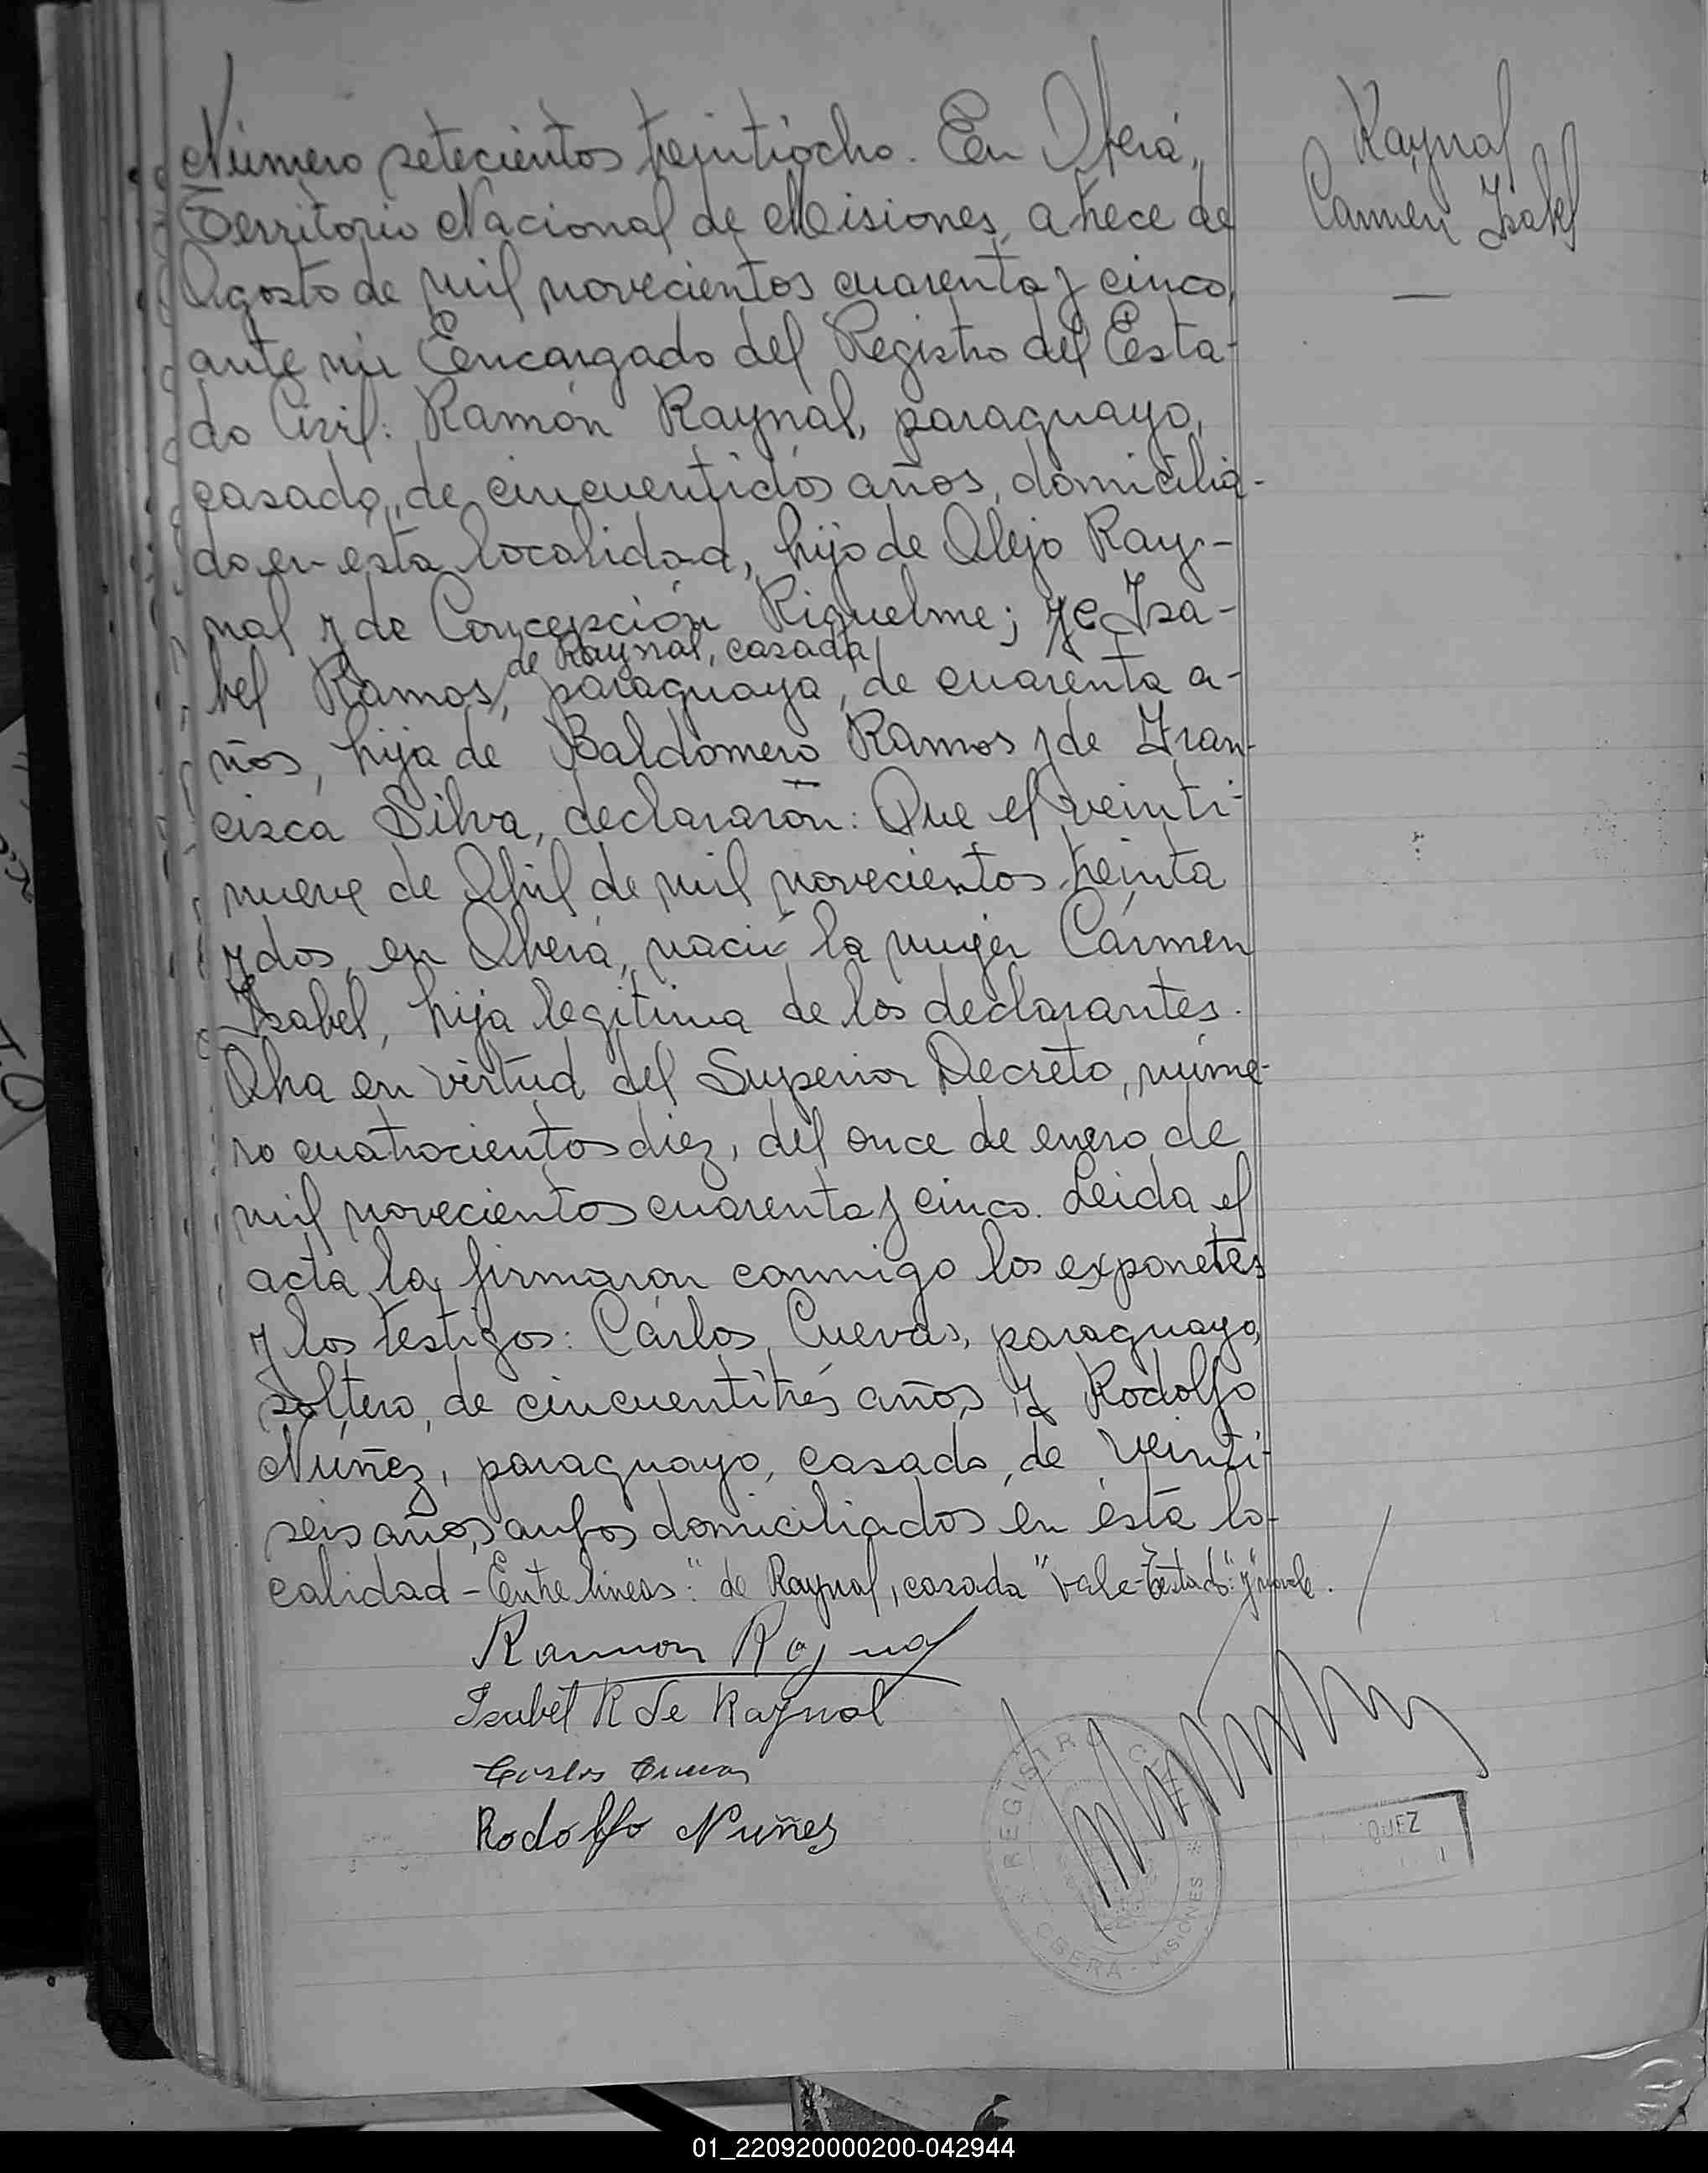 Raynal
Carmen Isabel
Número setecientos treintiócho. En Oberá,
Territorio Nacional de Misiones, a trece de
Agosto de mil novecientos cuarenta y cinco,
ante mi Encargado del Registro del Esta-
do Civil: Ramón Raynal, paraguayo,
casado, de cincuentidós años, domicilia-
do en esta localidad, hijo de Alejo Ray-
nal y de Concepción Riquelme; y e Isa-
de Raynal, casada
bel Ramos, paraguaya, de cuarenta a-
ños, hija de Baldomero Ramos y de Fran-
cisca Silva, declararon: Que el veinti-
nueve de Abril de mil novecientos treinta
y dos, en Oberá, nació la mujer Cármen
Isabel, hija legítima de los declarantes.
Obra en virtud del Superior Decreto, núme-
ro cuatrocientos diez, del once de enero de
mil novecientos cuarenta y cinco. Leida el
acta la firmaron conmigo los exponetes
y los testigos: Cárlos Cuevas, paraguayo,
soltero, de cincuentitrés años y Rodolfo
Núñez, paraguayo, casado, de veinti-
seis años, ambos domiciliados en ésta lo-
calidad - Entre lineas: "de Raynal, casada" vale - Testado: "y" no vale.
Ramon Raynal
Isabel R de Raynal
Carlos Cuevas
Rodolfo Nuñez
REGISTRO CIVIL
OBERA - MISIONES
QUEZ
01_220920000200-042944